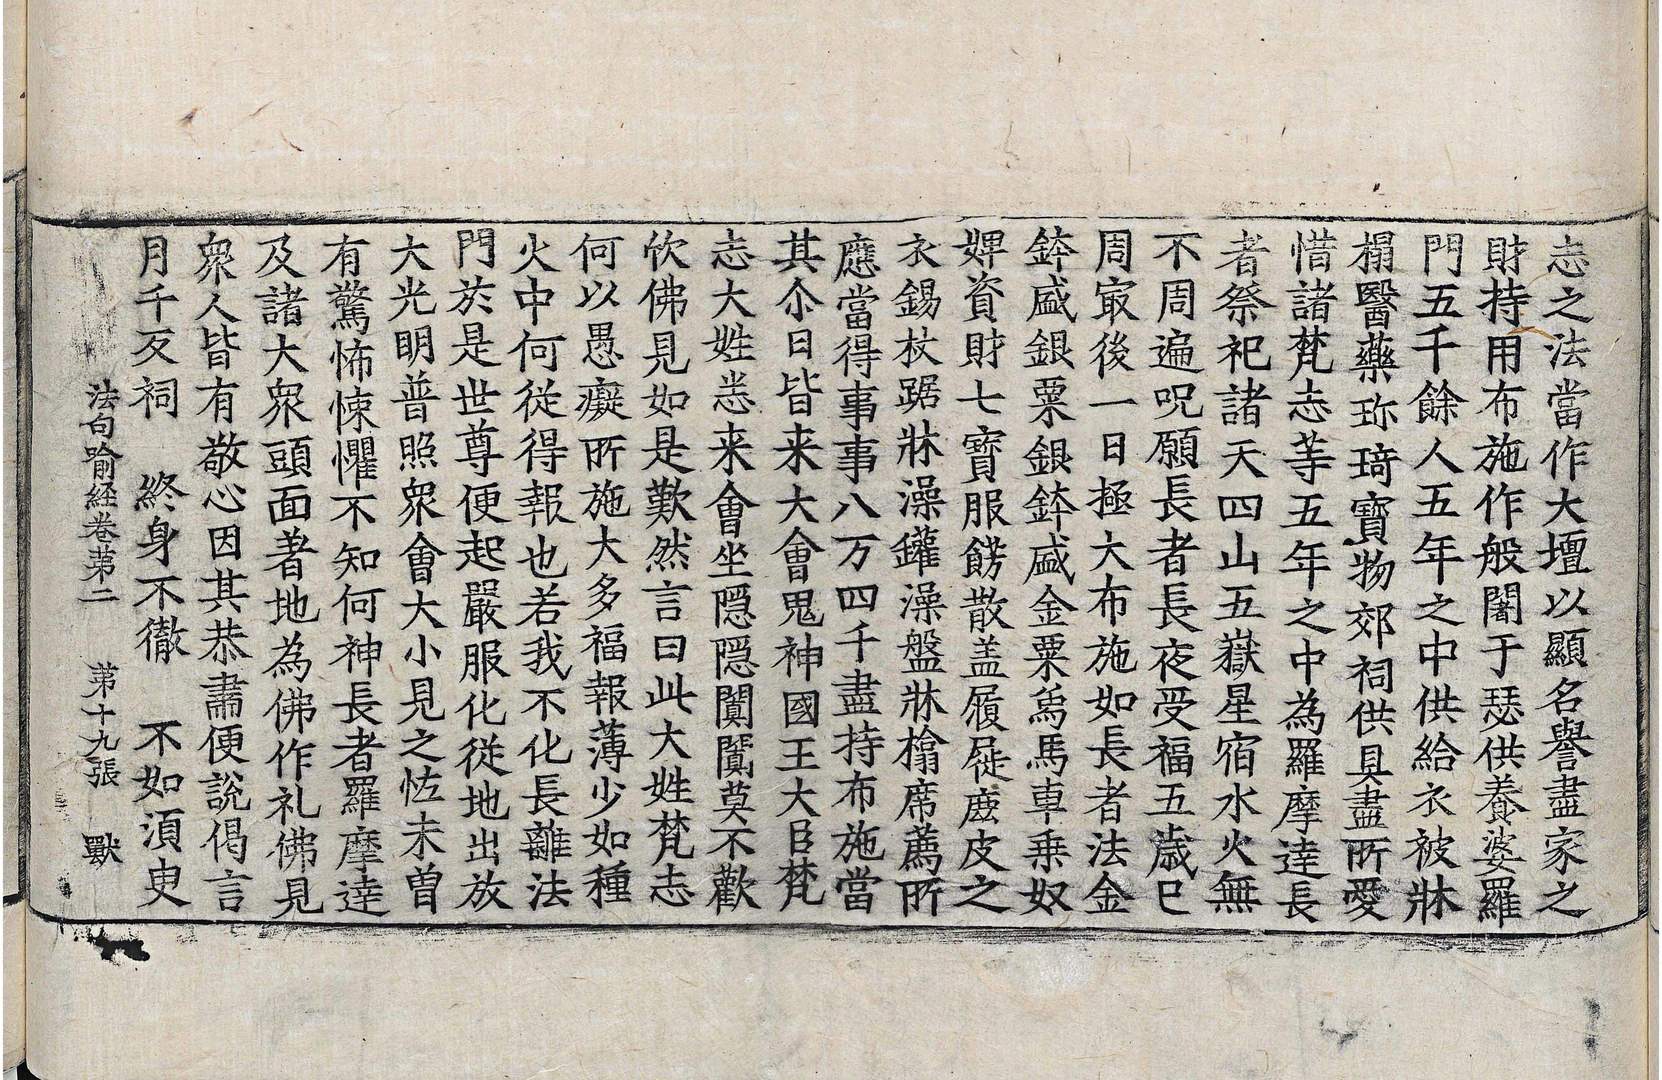 志之法當作大壇以顯名譽盡家之
財持用布施作般闍于瑟供養婆羅
門五千餘人五年之中供給衣被牀
榻醫藥珎琦寶物郊祠供具盡所愛
惜諸梵志等五年之中為羅摩達長
者祭祀諸天四山五嶽星宿水火無
不周遍呪願長者長夜受福五歳已
周㝡後一日極大布施如長者法金
鉢盛銀粟銀鉢盛金粟烏馬車乗奴
婢資財七寳服餝散盖履屣鹿皮之
衣錫杖踞牀澡鑵澡盤牀㯓席薦所
應當得事事八万四千盡持布施當
其尒日皆来大會鬼神國王大臣梵
志大姓悉来會坐隠隠闐闐莫不歡
忻佛見如是歎然言曰此大姓梵志
何以愚癡所施大多福報薄少如種
火中何從得報也若我不化長離法
門於是世尊便起嚴服化從地出放
大光明普照衆會大小見之恠未曽
有驚怖悚懼不知何神長者羅摩達
及諸大衆頭面著地為佛作礼佛見
衆人皆有敬心因其恭肅便說偈言
月千反祠　終身不徹　不如須臾
法句喻経卷苐二　苐十九張　獸